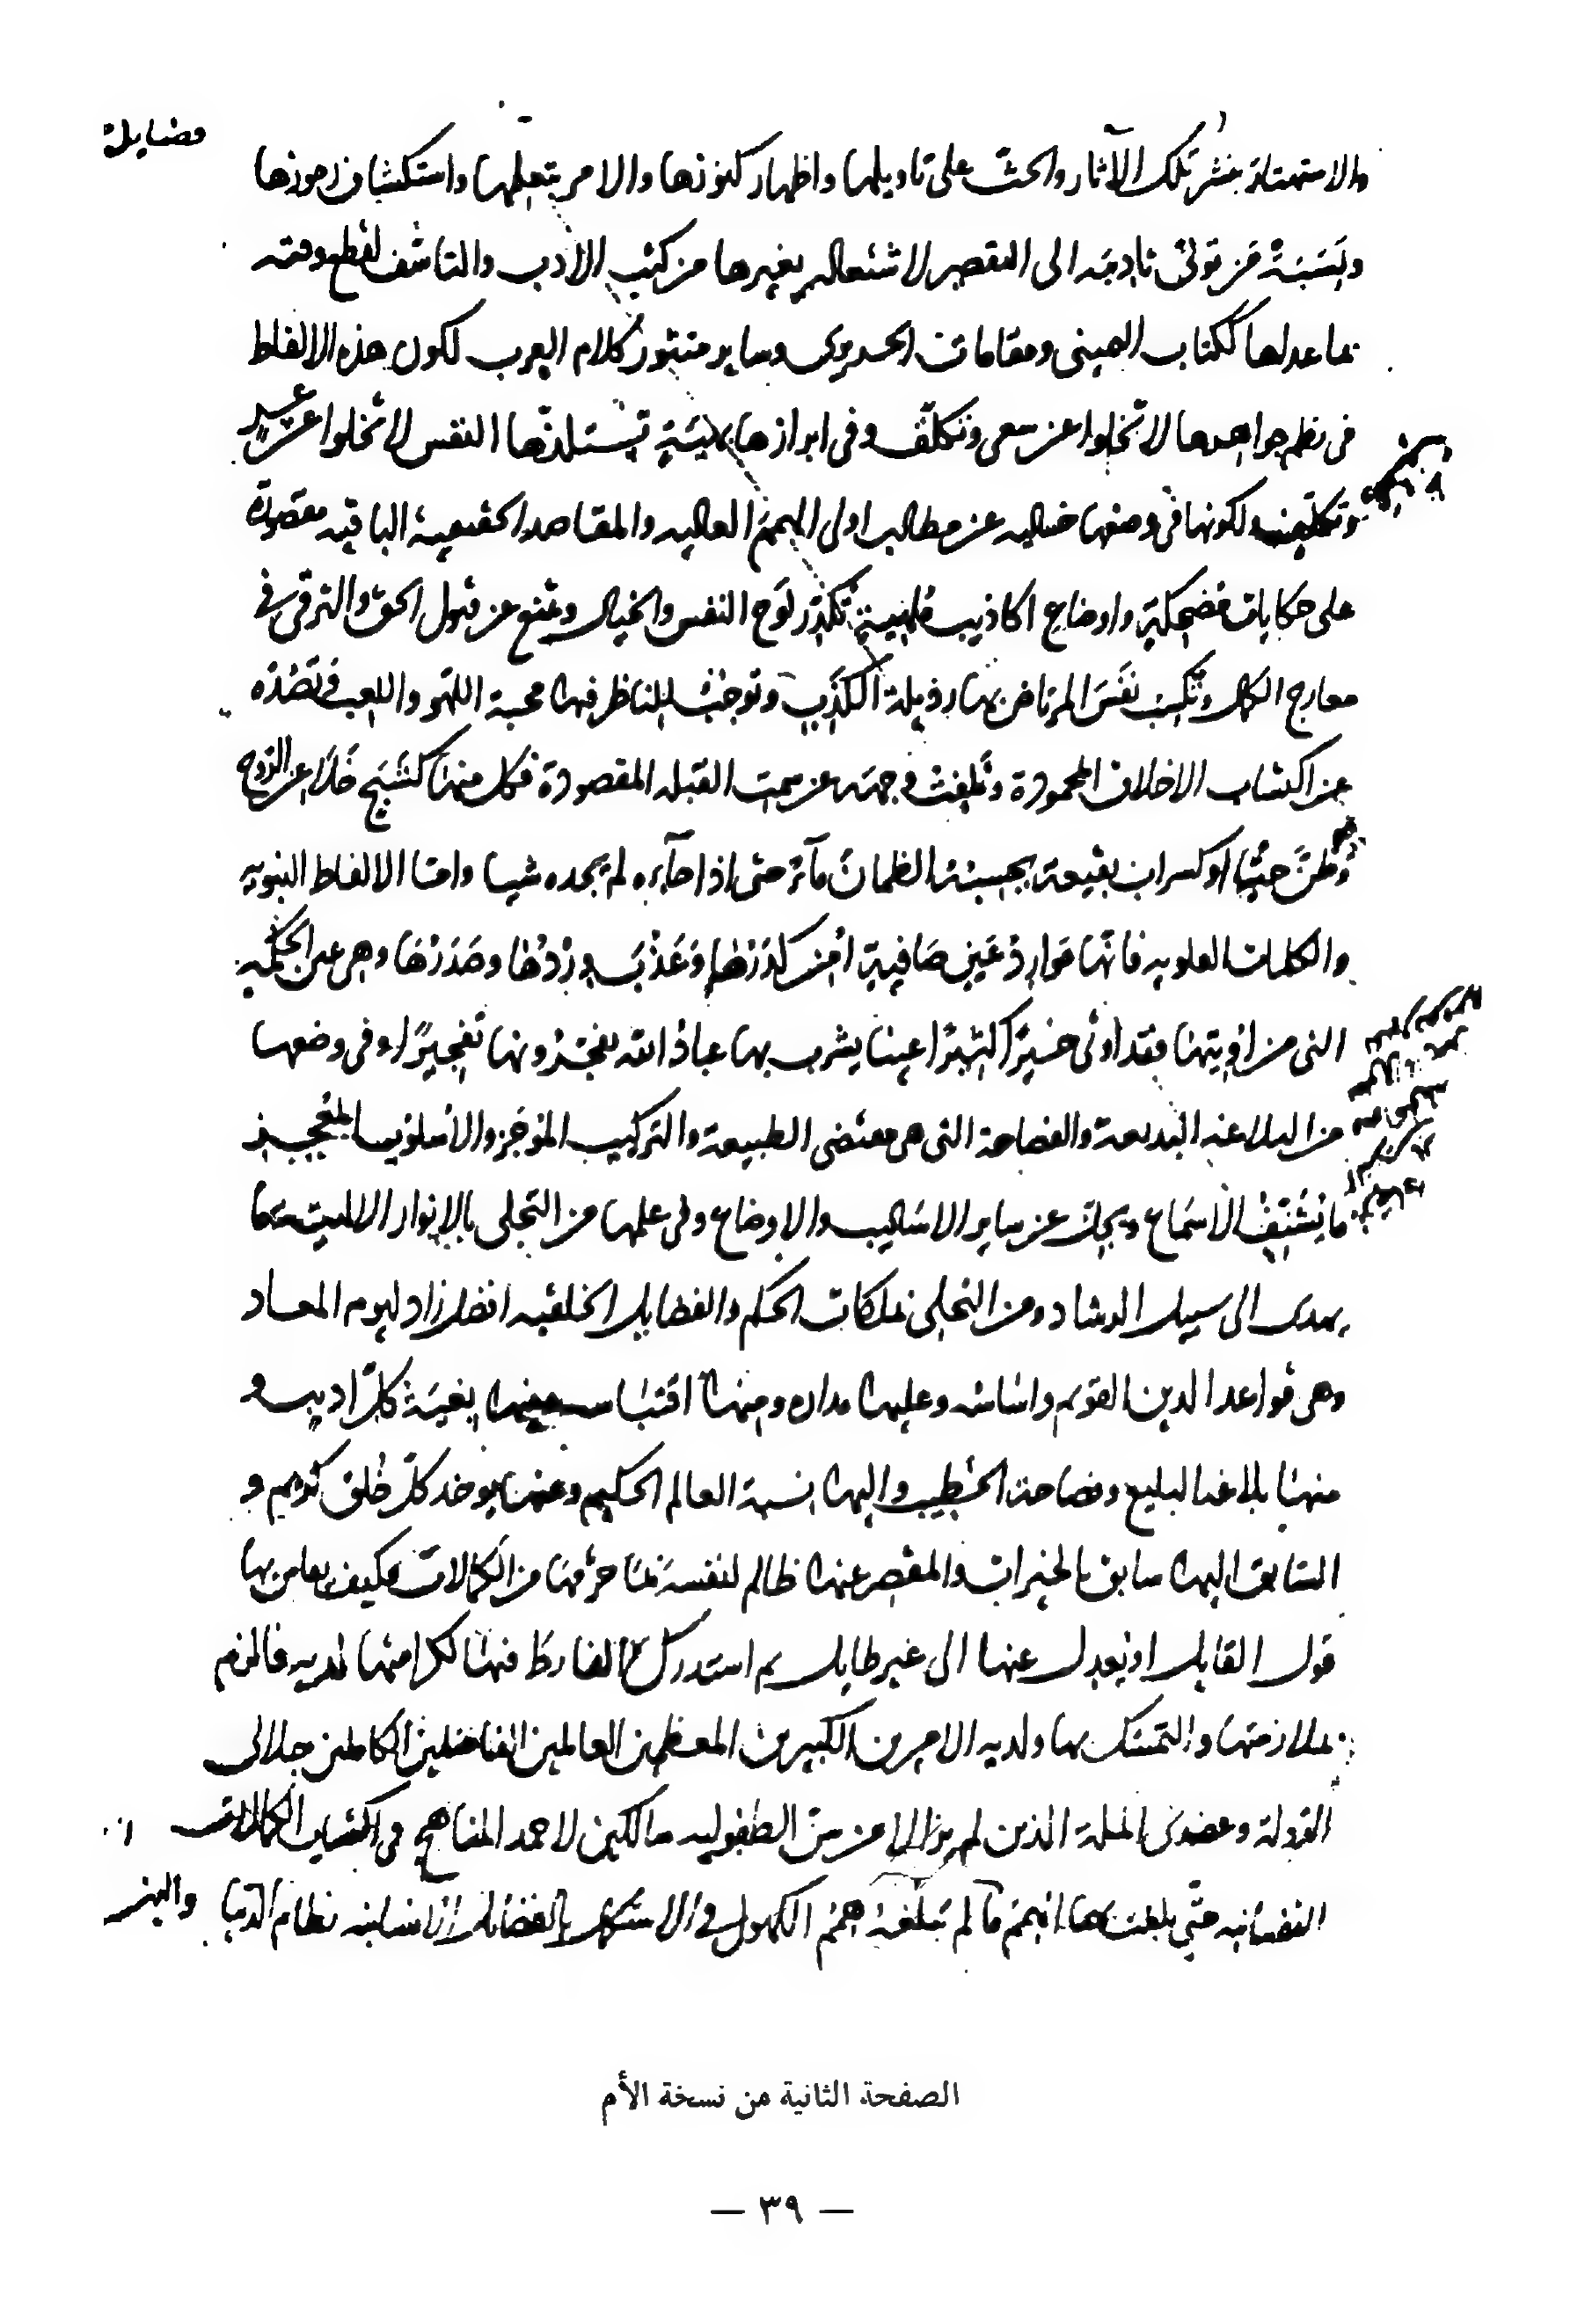 فضايله
والاستهتار بنشر تلك الآثار والحث على تاويلها واظهار كنوزها والامر بتعلمها واستكشاف رموزها
ونسبة من تولى تاديبه الى التقصير لاشتغاله بغيرها من كتب الادب والتاسف لقطع وقته
بما عداها ككتاب اليمينى ومقامات الحريرى وساير منثور كلام العرب لكون هذه الالفاظ
فى نظم جواهرها لا تخلوا عن سعى وتكلف وفى ابرازها تستلذها النفس لا تخلوا عن
وتكليف ولكونها فى وصفها خاليه عن مطالب اولى الهمم العاليه والمقاصد الحقيقية الباقيه مقصورة
على حكايات مضحكة واوضاع اكاذيب ملهية تكدر لوح النفس والخيال وتمنع عن قبول الحق والترقى فى
معارج الكمال وتكسب نفس المرتاض بها رذيلة الكذب وتوجب للناظر فيها محبة اللهو واللعب فتصده
عن اكتساب الاخلاق المحمودة وتلفت وجهه عن سمت القبلة المقصودة فكل منها كشبح خلا عن الروح
وظن حيا او كسراب بقيعة يحسبه الظمان ماء حتى اذا جآءه لم يجده شيا واما الالفاظ النبويه
والكلمات العلويه فانها موارد عين صافية امن كدرها وعذب وردها وصدرها وهى عين الحكمه
التى من اوتيتها فقد اوتى خيرا كثيرا عينا يشرب بها عباد الله يفجرونها تفجيرا وفى وضعها
من البلاغه البديعة والفصاحة التى هى مقتضى الطبيعة والتركيب الموجز والاسلوب المعجز
ما يشنف الاسماع ويجل عن ساير الاساليب والاوضاع وفى علمها من التجلى بالانوار الالهية ما
يهدى الى سبيل الرشاد ومن التحلى بملكات الحكم والفضايل الخلقيه افضل زاد ليوم المعاد
وهى قواعد الدين القويم واساسه وعليها مداره ومنها اقتباسه بغية كل اديب و
منها بلاغة البليغ وفصاحة الخطيب واليها نسبة العالم الحكيم وعنها يوخذ كل خلق كريم و
السابق اليها سابق بالخيرات والمقصر عنها ظالم لنفسه بما حرمها من الكمالات فكيف يقاس بها
قول القايل او يعدل عنها الى غير طايل ثم استدرك الفارط فيها لكرامتها لديه فالزم
بملازمتها والتمسك بها ولديه الاميرين الكبيرين المعظمين العالمين الفاضلين الكاملين جلالى
الدولة وعضدى الملة الذين لم يزالا من سن الطفوليه سالكين لاحمد المناهج فى اكتساب الكمالات
النفسانيه حتى بلغت بهما انهمم ما لم تبلغه همم الكهول فى الاستكمال بالفضايل الانسانيه نظام الدنيا
الصفحة الثانية من نسخة الأم
— ٣٩ —